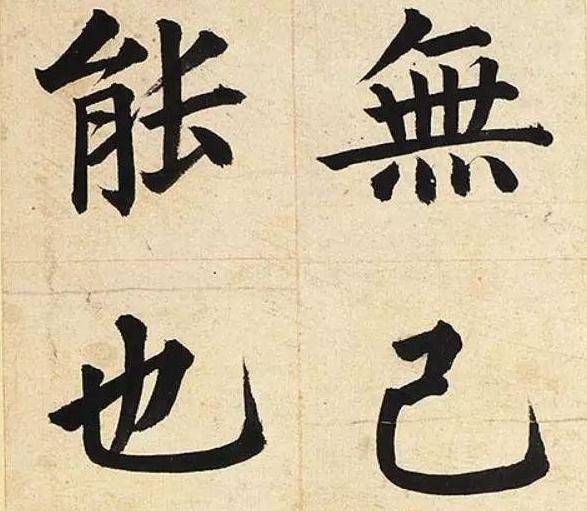 無己
能也